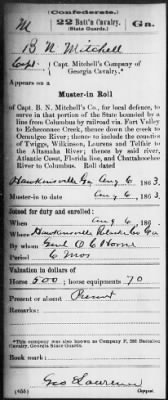 (Confederate.)
M 22 Batt'n Cavalry. Ga.
(State Guards.)
B N Mitchell
Capt, Capt. Mitchell's Company of
Georgia Cavalry.*
Appears on a
Muster-in Roll
of Capt. B. N. Mitchell's Co., for local defence, to serve
in that portion of the State bounded by a
line from Columbus by railroad via. Fort Valley
to Echeconnee Creek, thence down the creek to
Ocmulgee River; thence to include the counties
of Twiggs, Wilkinson, Laurens and Telfair to
the Altamaha River; thence by said river,
Atlantic Coast, Florida line, and Chattahoochee
River to Columbus. Roll dated
Hawkinsville Ga Aug 6, 1863.
Muster-in to date Aug 6, 1863.
Joined for duty and enrolled:
When Aug 6, 186
Where Hawkinsville Pulaski Co Ga
By whom Genl O C Horne
Period 6 Mos
Valuation in dollars of
Horse 500; horse equipments 70
Present or absent Present
Remarks:
*This company was also known as Company F, 22d Battalion
Cavalry, Georgia State Guards.
Book mark:
Geo Lawrence
(655) Copyist.